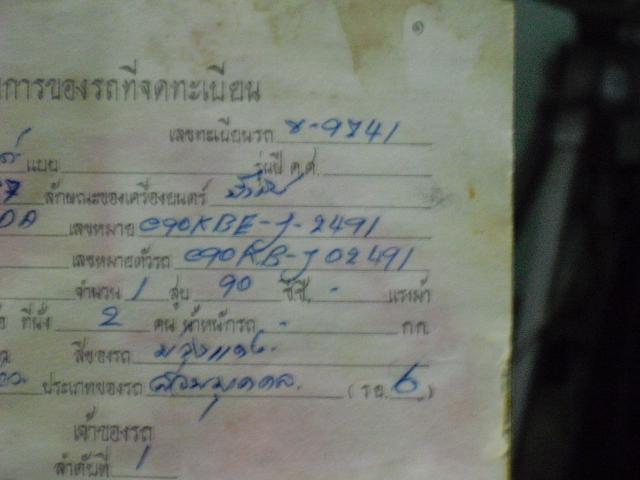 ๑
การของรถที่จดทะเบียน
เลขทะเบียนรถ ช-9741
แบบ รุ่นปี ค.ศ.
ลักษณะของเครื่องยนต์
เลขหมาย C90KBE-J-2491
เลขหมายตัวรถ C90KB-J02491
จำนวน 1 สูบ 90 ซีซี. - แรงม้า
ที่นั่ง 2 คน น้ำหนักรถ - กก.
สีของรถ
ประเภทของรถ ส่วนบุคคล. (รย. 6)
เจ้าของรถ
ลำดับที่ 1